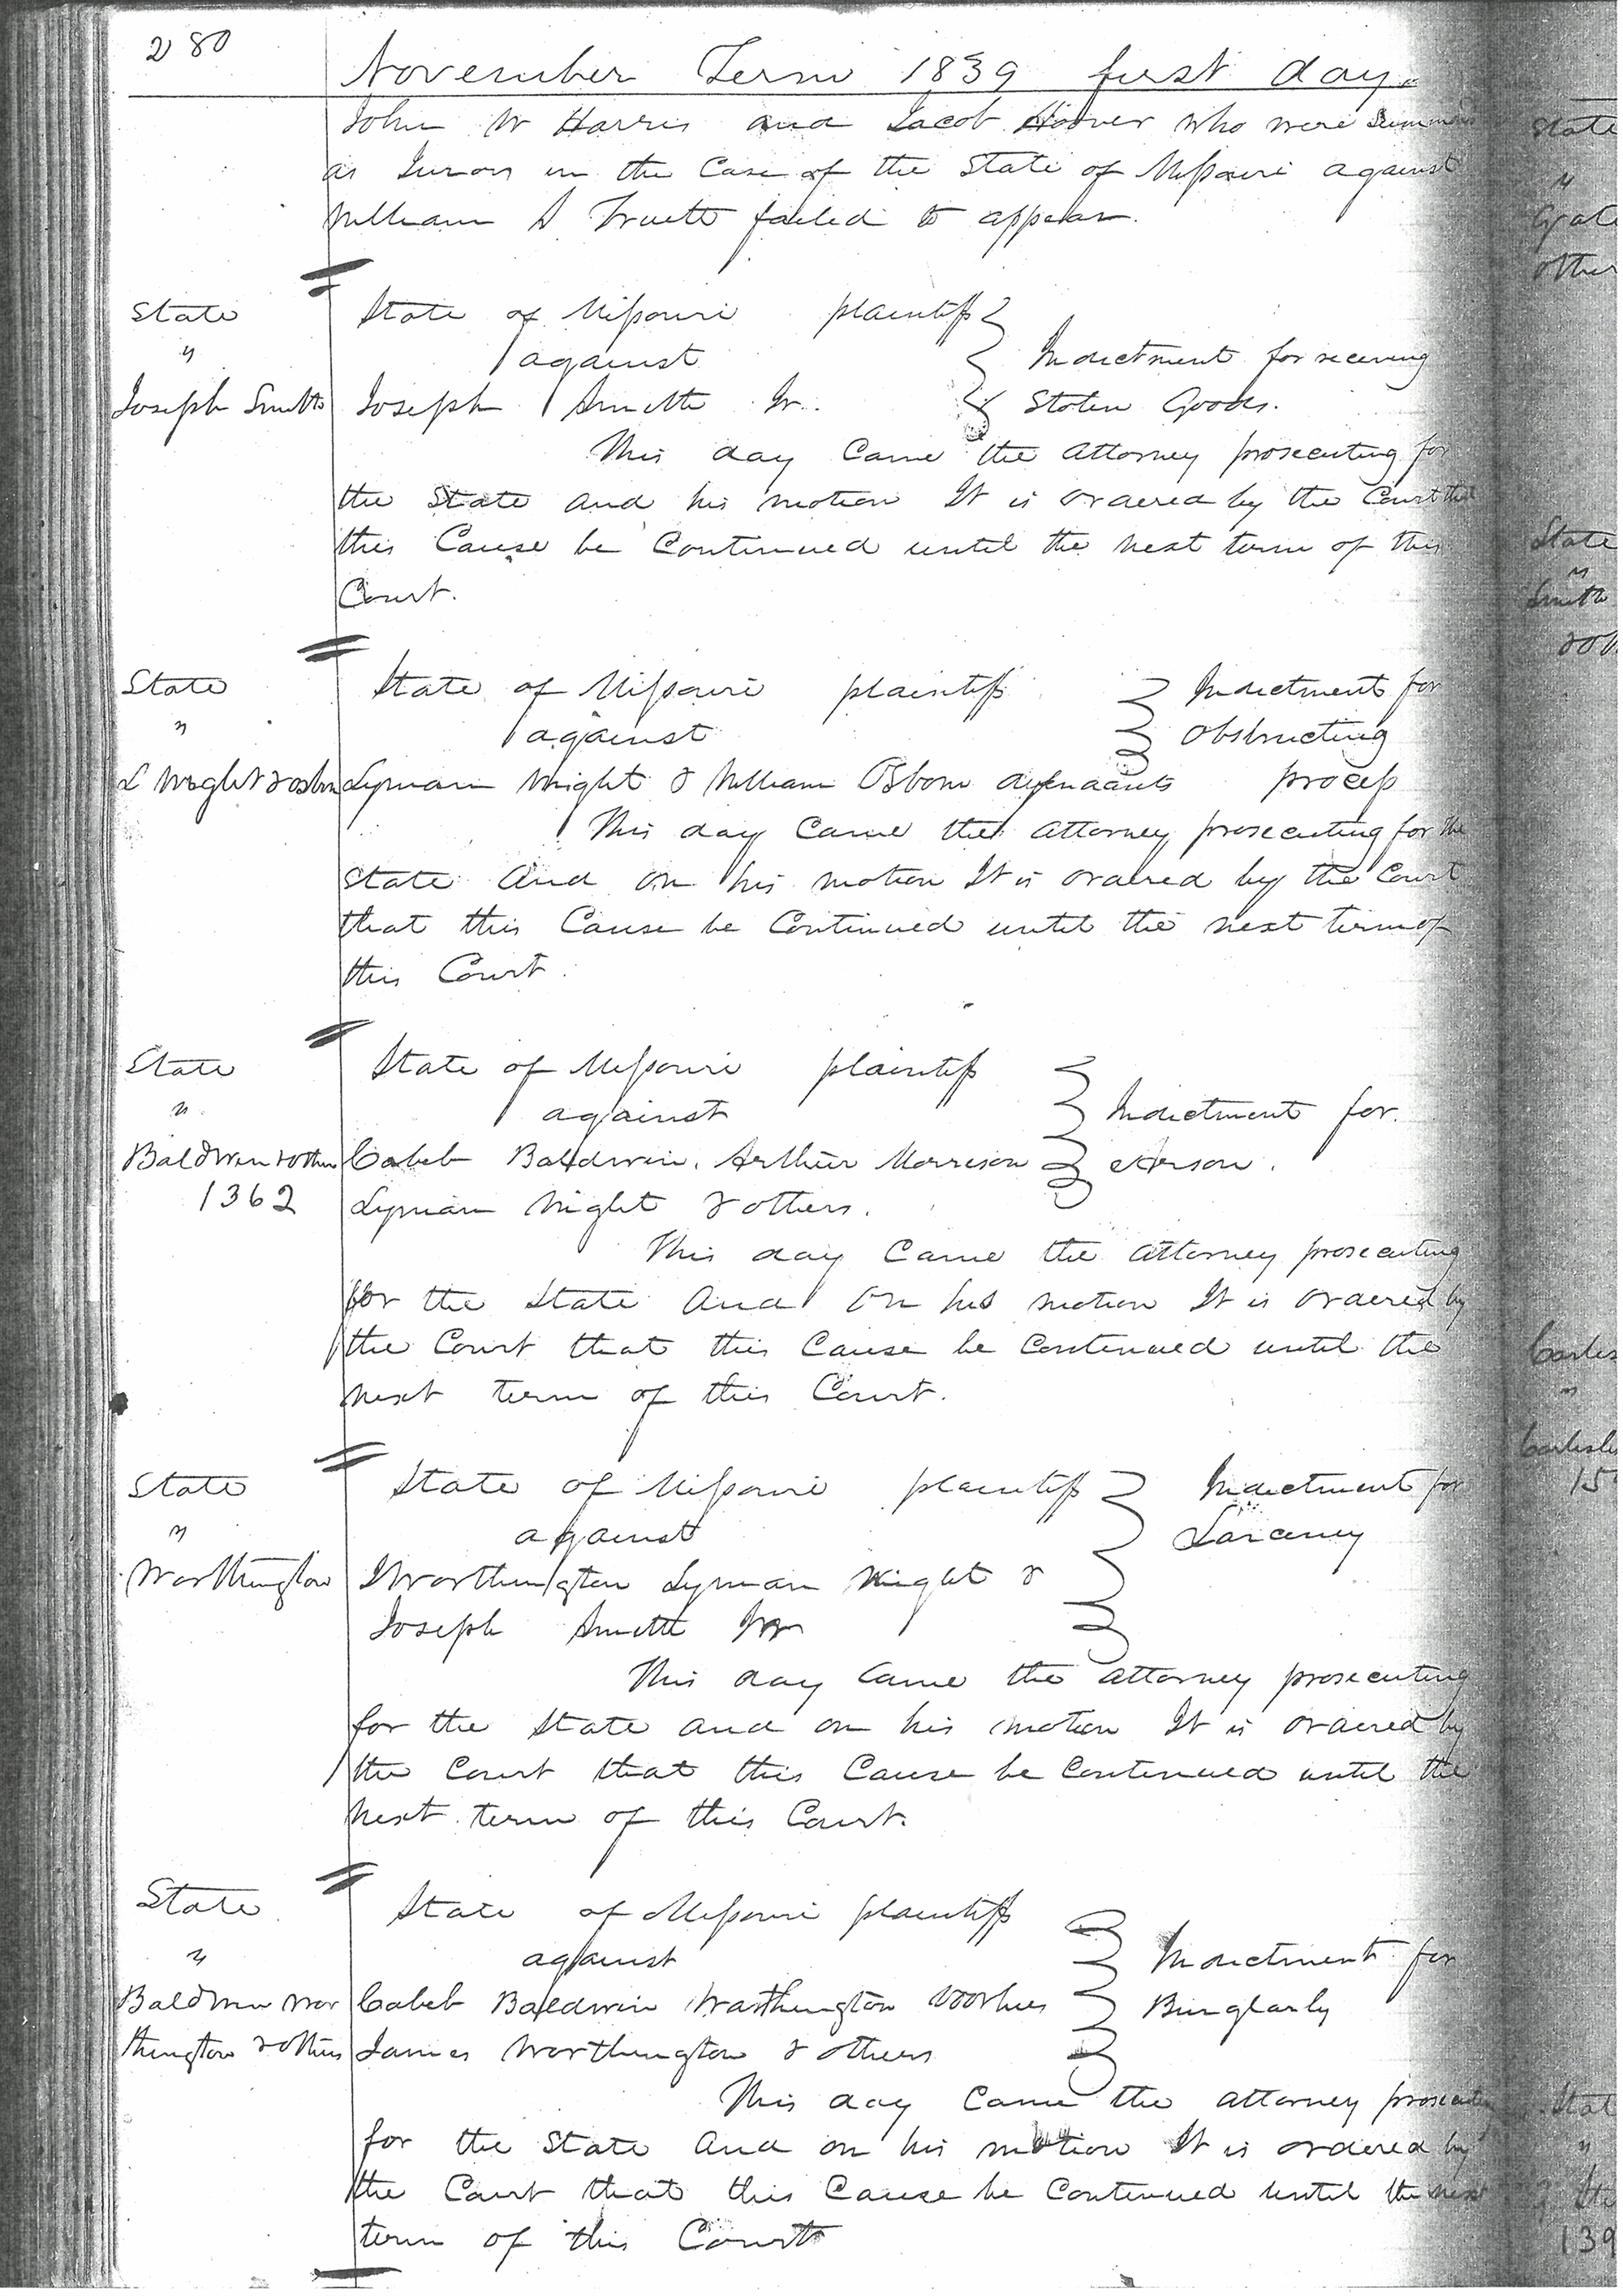 280
November Term 1839 first day.
John W Harris and Jacob Hoover who were
as Jurors in the Case of the State of Missouri against
William S Truett failed to appear.
State
"
Joseph Smith
State of Missouri plaintiff
against
Joseph Smith Jr.
Indictment for receiving
Stolen Goods.
This day Came the attorney prosecuting for
the State and his motion It is ordered by the Court that
this Cause be Continued until the next term of this
Court.
State
"
L Wight & Osborn
State of Missouri plaintiff
against
Lyman Wight & William Osborn defendants
Indictment for
Obstructing
process
This day Came the attorney prosecuting for the
State And on his motion It is ordered by the Court
that this Cause be Continued until the next term of
this Court.
State
"
Baldwin & others
1362
State of Missouri plaintiff
against
Caleb Baldwin. Arthur Morrison
Lyman Wight & others.
Indictment for.
Arson.
This day Came the attorney prosecuting
for the State And On his motion It is ordered by
the Court that this Cause be Continued until the
next term of this Court.
State
"
Worthington
State of Missouri plaintiff
against
J Worthington Lyman Wight &
Joseph Smith Jr
Indictment for
Larceny
This day Came the attorney prosecuting
for the State and on his motion It is ordered by
the Court that this Cause be Continued until the
next term of this Court.
State
"
Baldwin Wor
thington & others
State of Missouri plaintiff
against
Caleb Baldwin Washington Voorhees
James Worthington & others
Indictment for
Burglarly
This day Came the attorney
for the State And on his motion It is ordered by
the Court that this Cause be Continued until the next
term of this Court
State
"
State
"
Smith
"
"
139